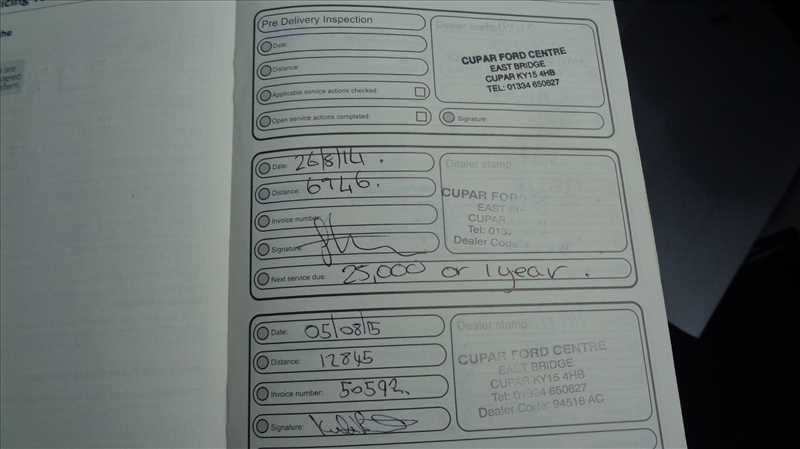 the
Pre Delivery Inspection
Date:
Distance:
Applicable service actions checked:
Open service actions completed:
CUPAR FORD CENTRE
EAST BRIDGE
CUPAR KY15 4HB
TEL: 01334 650627
Signature:
Date: 26/8/14.
Distance: 6746.
Invoice number:
Signature:
Next service due: 25,000 or 1 year.
Dealer stamp:
CUPAR FORD
EAST
CUPAR
Tel:
Dealer Code
Date: 05/08/15
Distance: 12845
Invoice number: 50592.
Signature:
Dealer stamp:
CUPAR FORD CENTRE
EAST BRIDGE
CUPAR KY15 4HB
Tel: 01334 650627
Dealer Code: 94516 AC